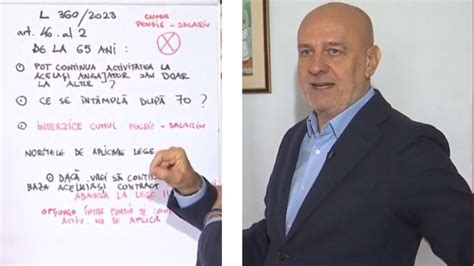 L 360/2023
CUMUL
PENSIE - SALARIU
art. 46. al 2
DE LA 65 ANI :
POT CONTINUA ACTIVITATEA LA
ACELAȘI ANGAJATOR SAU DOAR
LA ALȚII ?
CE SE ÎNTÂMPLĂ DUPĂ 70 ?
INTERZICE CUMUL PENSIE - SALARIU
NORMELE DE APLICARE LEGE
DACĂ VREI SĂ CONTINUI
BAZA ACELUIAȘI CONTRACT
ABATERE LA LEGE !!
OPȚIUNEA ÎNTRE PENSIE ȘI
ACTIV. NU SE APLICĂ